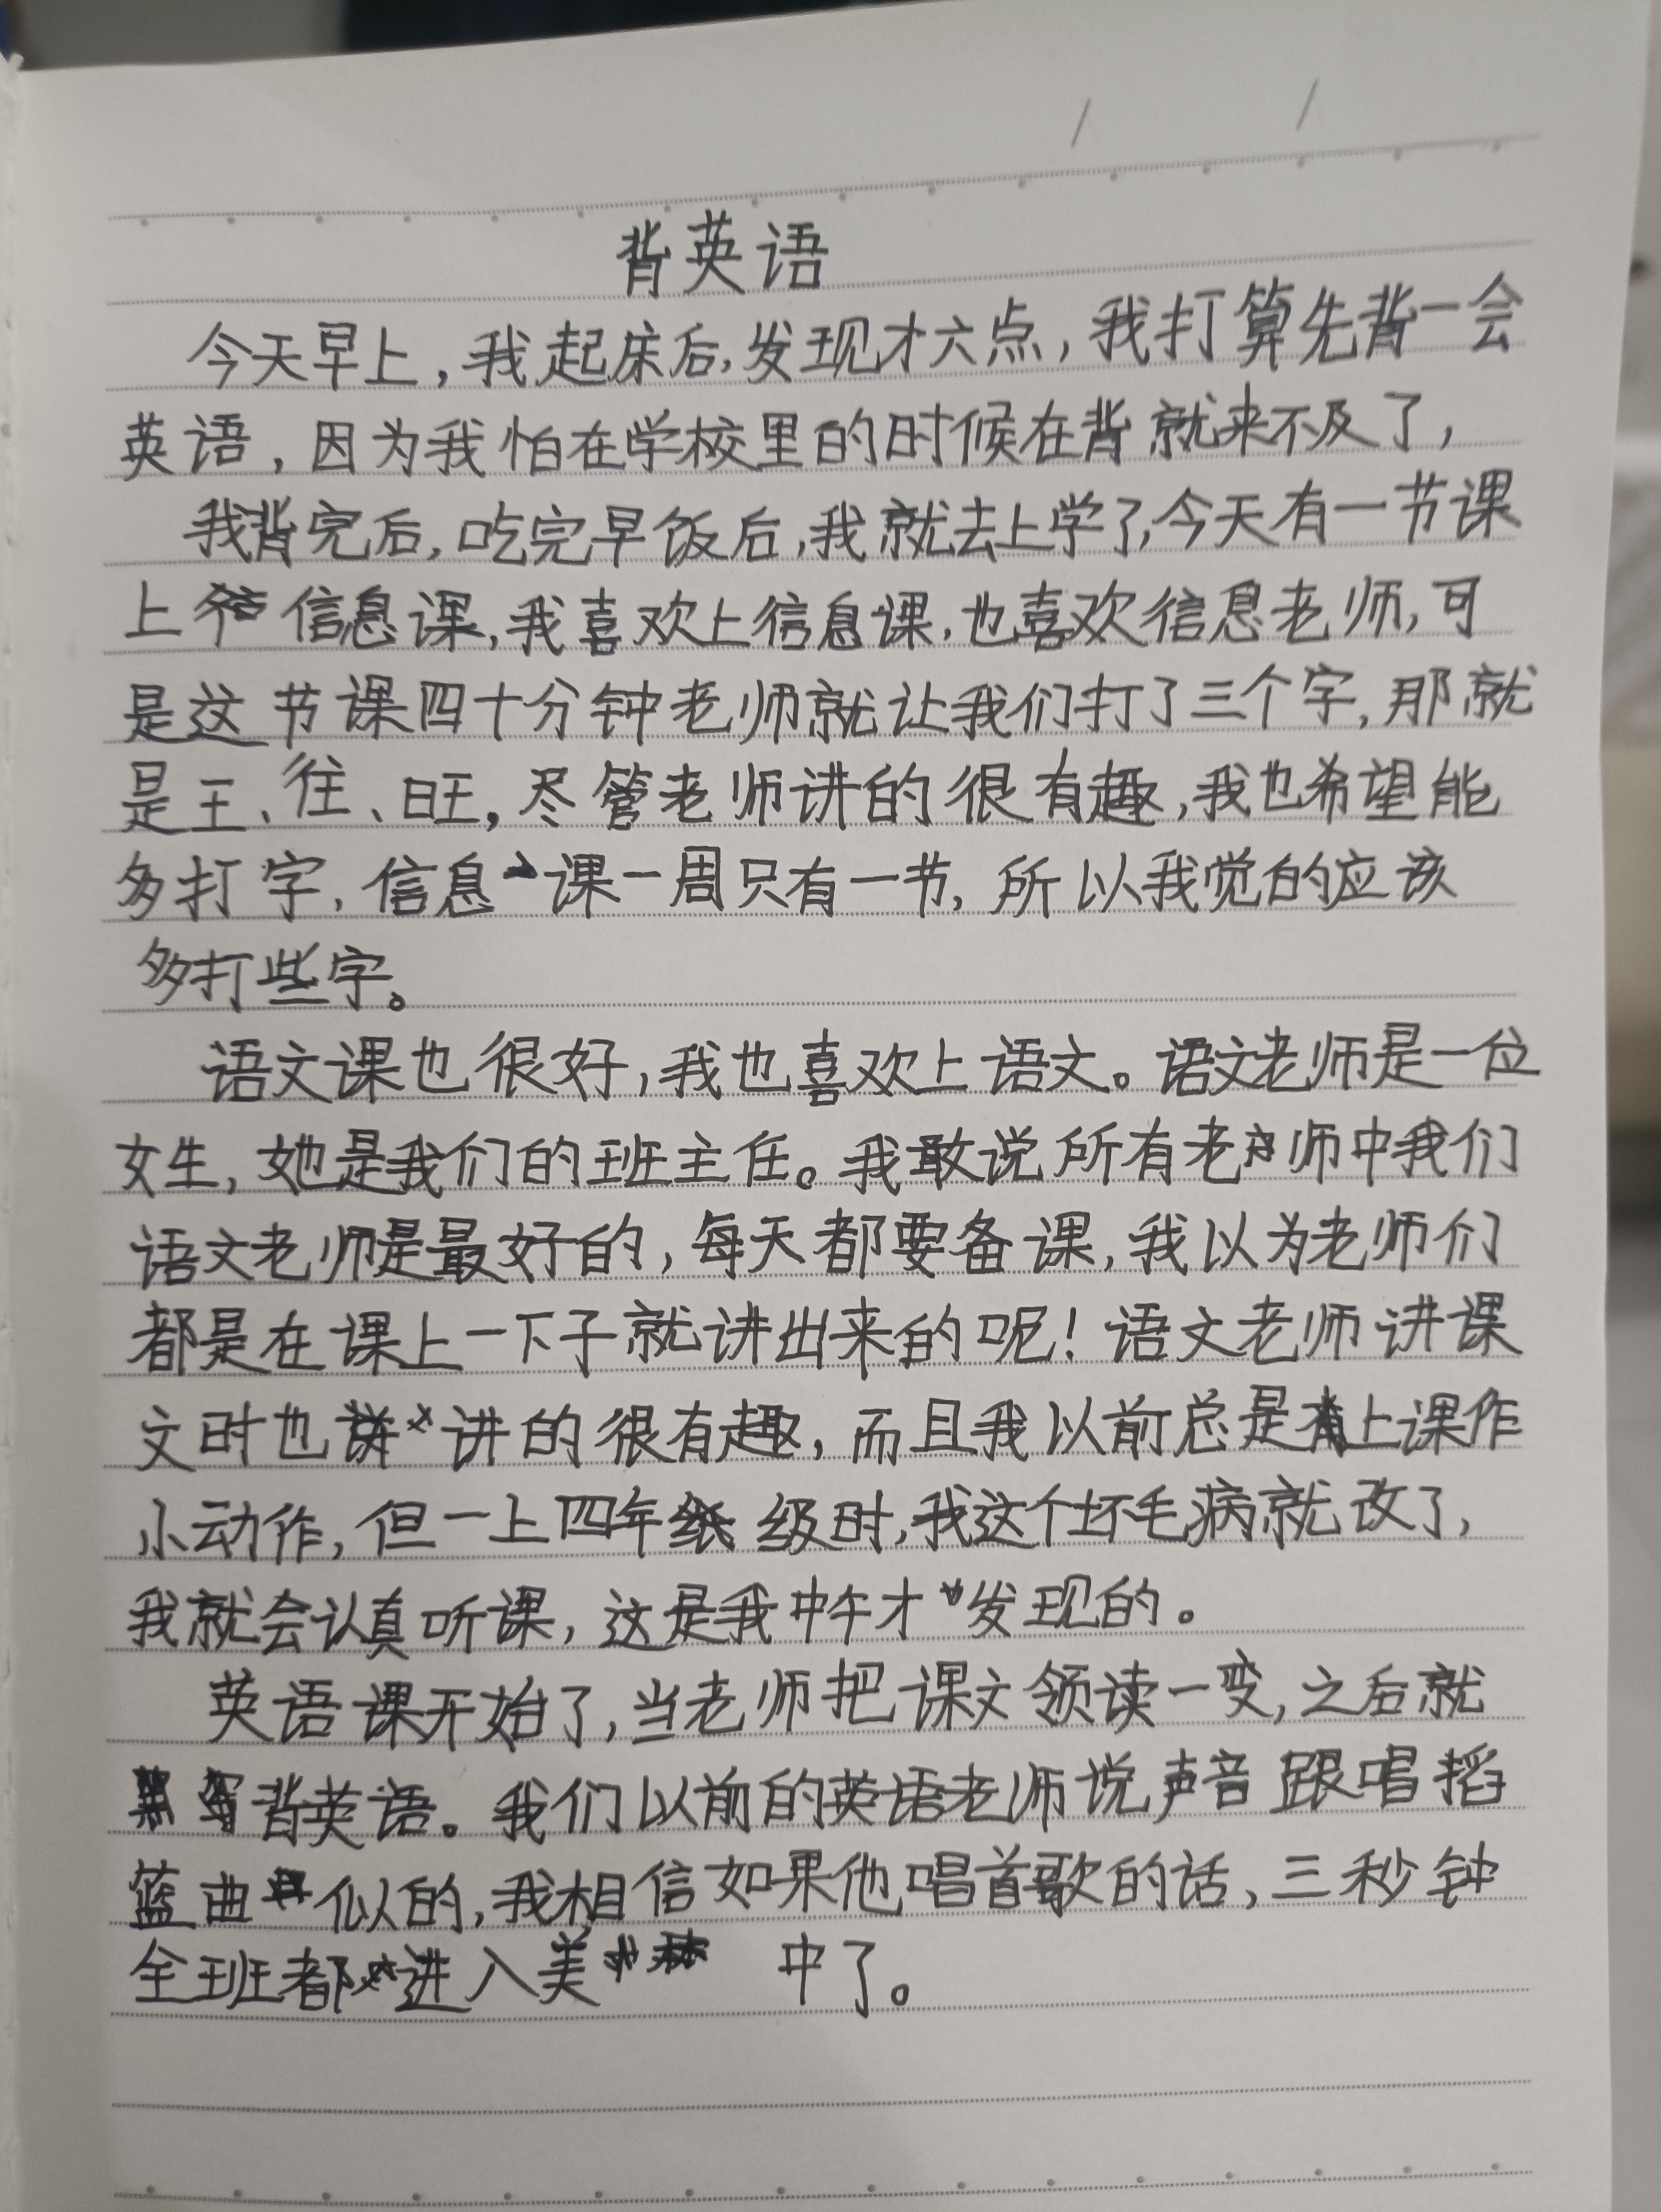 背英语
今天早上，我起床后，发现才六点，我打算先背一会
英语，因为我怕在学校里的时候在背就来不及了，
我背完后，吃完早饭后，我就去上学了，今天有一节课
上 信息课，我喜欢上信息课，也喜欢信息老师，可
是这节课四十分钟老师就让我们打了三个字，那就
是王、往、旺，尽管老师讲的很有趣，我也希望能
多打字，信息课一周只有一节，所以我觉的应该
多打些字。
语文课也很好，我也喜欢上语文。语文老师是一位
女生，她是我们的班主任。我敢说所有老师中我们
语文老师是最好的，每天都要备课，我以为老师们
都是在课上一下子就讲出来的呢！语文老师讲课
文时也讲的很有趣，而且我以前总是上课作
小动作，但一上四年级时，我这个坏毛病就改了，
我就会认真听课，这是我中午才发现的。
英语课开始了，当老师把课文领读一变，之后就
背英语。我们以前的英语老师说声音跟唱摇
蓝曲似的，我相信如果他唱首歌的话，三秒钟
全班都进入美 中了。